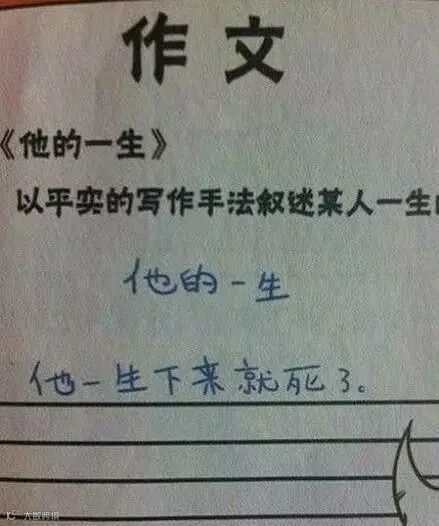 作文
《他的一生》
以平实的写作手法叙述某人一生
他的一生
他一生下来就死了。
大数跨境